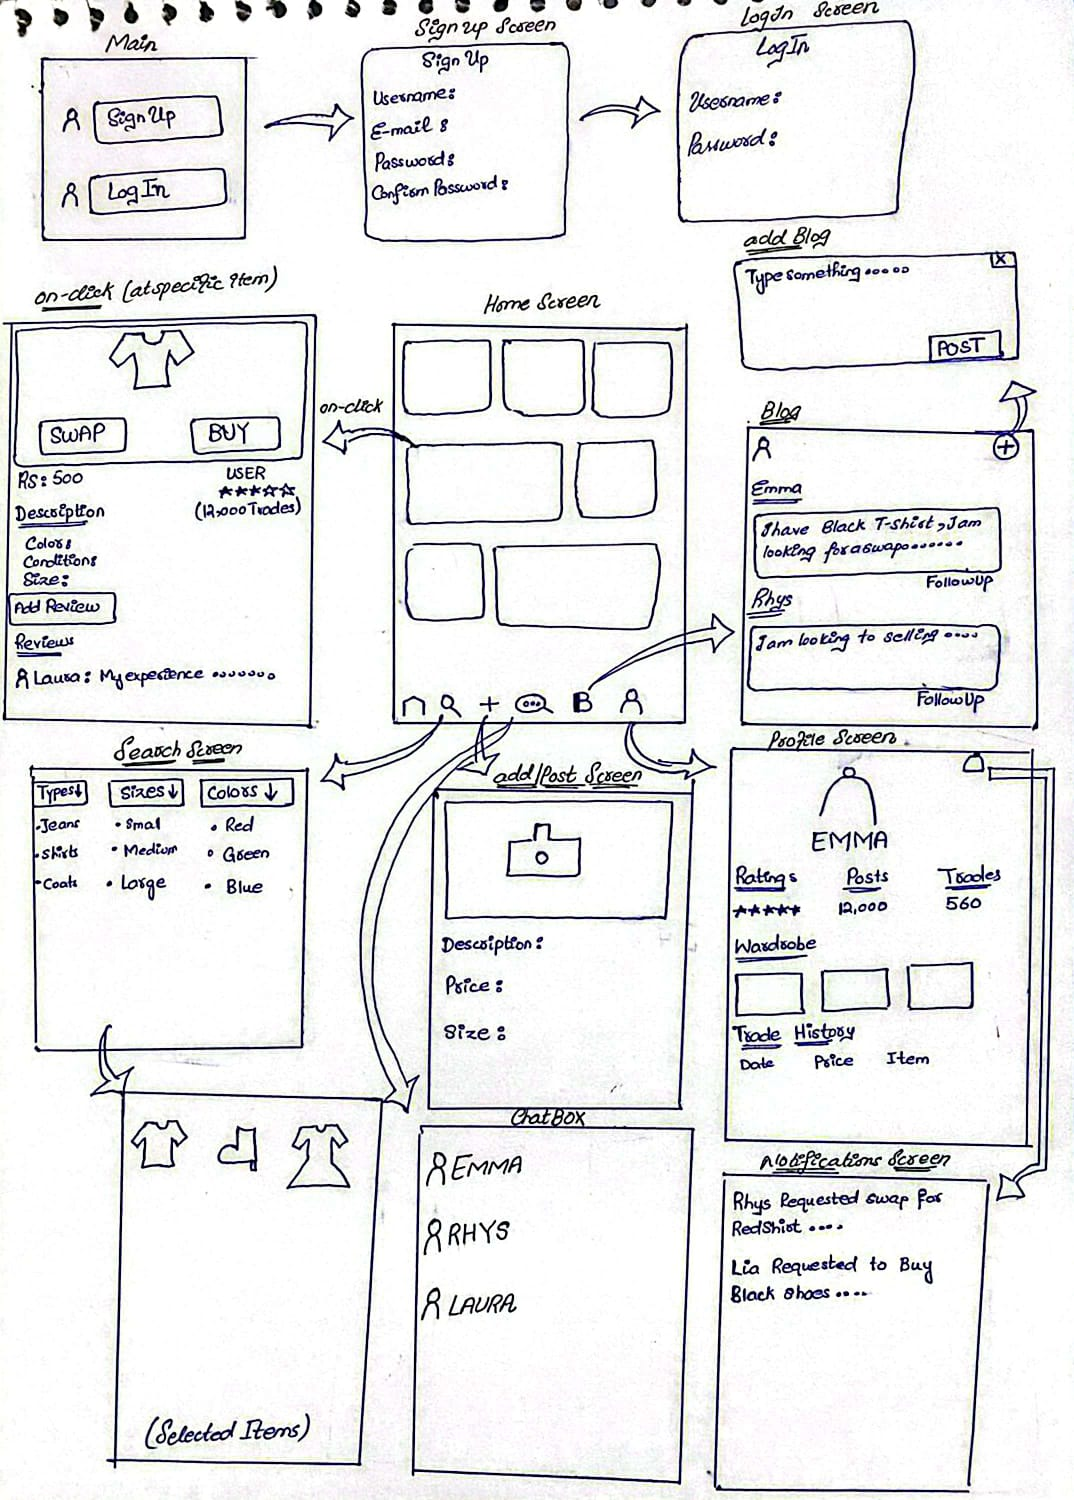 Main
Sign Up
Log In
Sign up Screen
Sign Up
Username:
E-mail :
Password:
Confirm Password:
LogIn Screen
LogIn
Username:
Password:
add Blog
X
Type something .....
POST
on-click (at specific item)
SWAP
BUY
RS: 500
USER
★★★☆☆
(12,000 Trades)
Description
Color:
Condition:
Size:
Add Review
Reviews
Laura: My experience .......
on-click
Home Screen
+
B
Blog
+
Emma
I have Black T-shirt, I am
looking for a swap......
Follow Up
Rhys
I am looking to selling ....
Follow Up
Search Screen
Types↓
Sizes ↓
Colors ↓
•Jeans
• Smal
• Red
•Shirts
• Medium
• Green
•Coats
• Large
• Blue
(Selected Items)
add/Post Screen
Description:
Price :
Size :
ChatBox
EMMA
RHYS
LAURA
Profile Screen
EMMA
Ratings
Posts
Trades
★★★★★
12,000
560
Wardrobe
Trade History
Date
Price
Item
Notifications Screen
Rhys Requested swap for
Red Shirt ....
Lia Requested to Buy
Black shoes ....